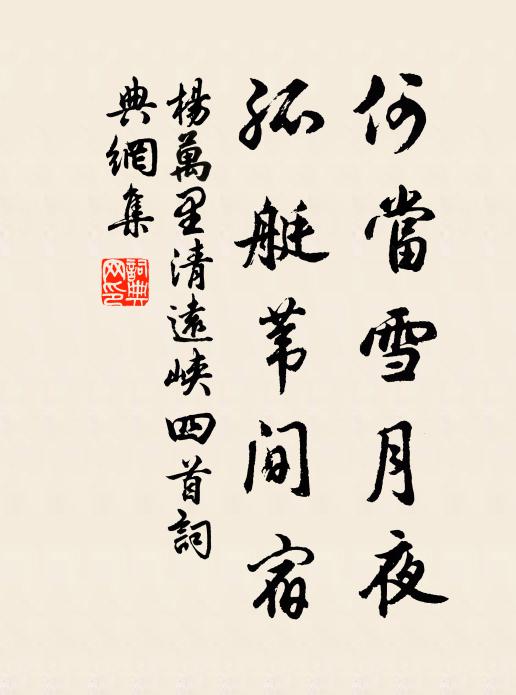 何當雪月夜
孤艇苇间宿
楊萬里清遠峽四首詞
典網集
詞典網印